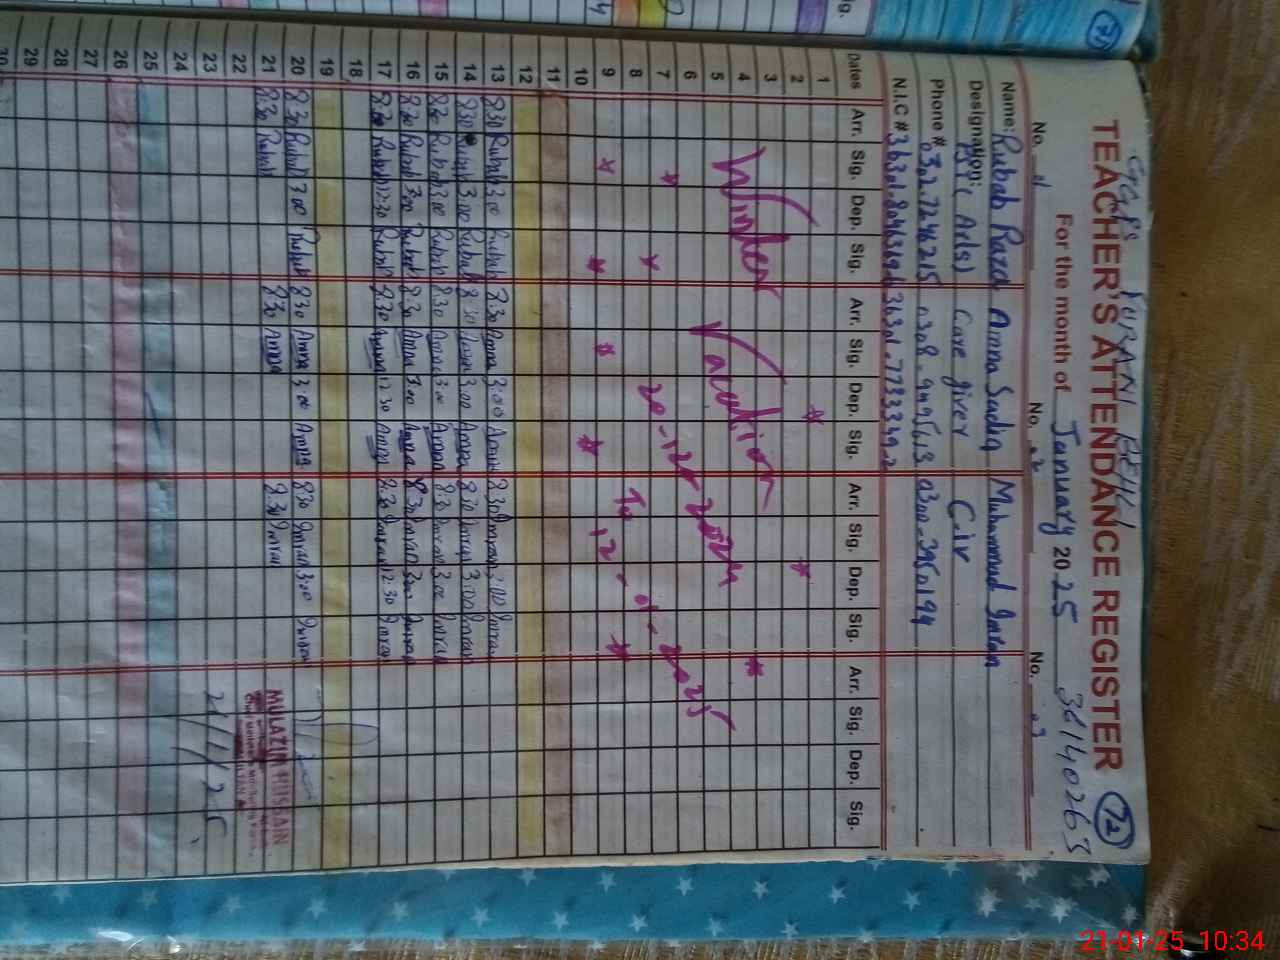 GGPS NURANI BEHKL
TEACHER'S ATTENDANCE REGISTER 72
For the month of January 2025 36140263
No. 1 No. 2 No. 3
Name: Rubab Raza Amna Sadiq Muhammad Imran
Designation: PST (Arts) Care giver C.iv
Phone # 0302.7246215 0308.9495613 0300.3950194
N.I.C # 36302.8046369.6 36302.7783349.2
Dates Arr. Sig. Dep. Sig. Arr. Sig. Dep. Sig. Arr. Sig. Dep. Sig. Arr. Sig. Dep. Sig.
1
2
3
4 Winter Vacation
5
6 20-12-2024
7 To
8 12-01-2025
9
10
11
12
13 8:30 Rubab 3:00 Rubab 8:30 Amna 3:00 Amna 8:30 Imran 3:00 Imran
14 8:30 Rubab 3:00 Rubab 8:30 Amna 3:00 Amna 8:30 Imran 3:00 Imran
15 8:30 Rubab 3:00 Rubab 8:30 Amna 3:00 Amna 8:30 Imran 3:00 Imran
16 8:30 Rubab 3:00 Rubab 8:30 Amna 3:00 Amna 8:30 Imran 3:00 Imran
17 8:30 Rubab 12:30 Rubab 8:30 Amna 12:30 Amna 8:30 Imran 12:30 Imran
18
19
20 8:30 Rubab 3:00 Rubab 8:30 Amna 3:00 Amna 8:30 Imran 3:00 Imran
21 8:30 Rubab 8:30 Amna 8:30 Imran
MULAZIM HUSSAIN
22
23 21/1/25
24
25
26
27
28
29
30
21-01-25 10:34